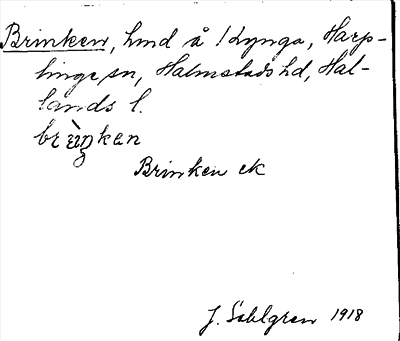 Brinken, hmd å 1 Lynga, Harp-
linge sn, Halmstads hd, Hal-
lands l.
briŋken
Brinken ek
J. Sahlgren 1918